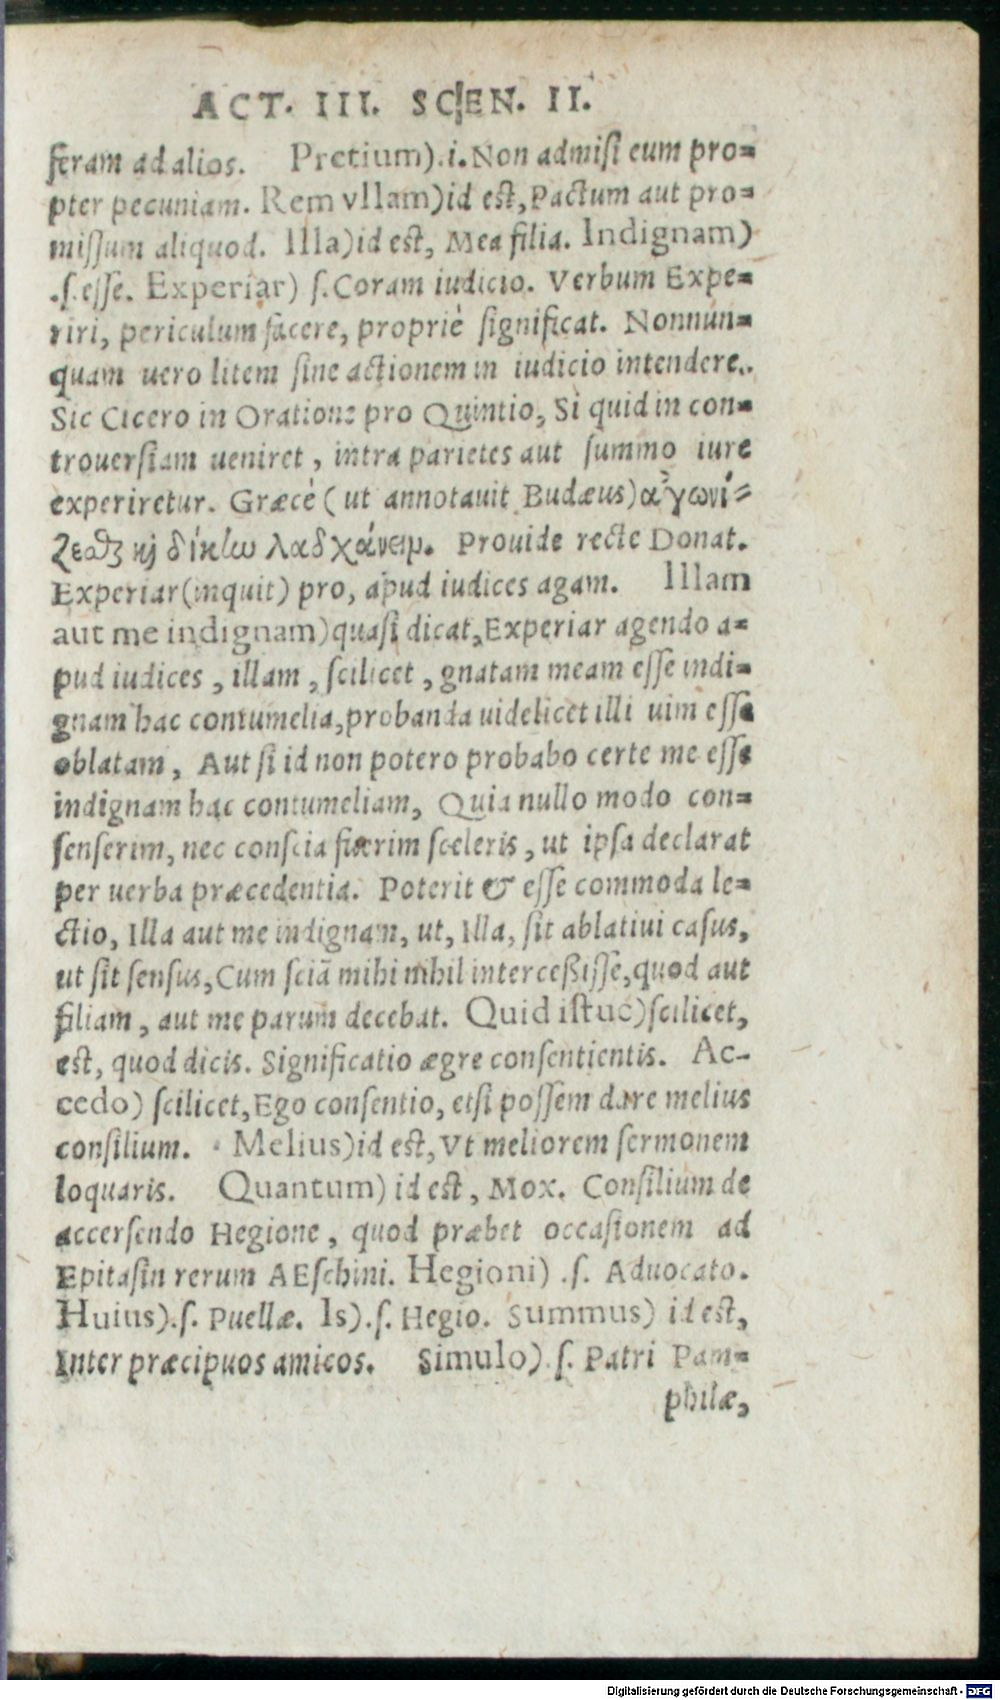 ACT. III. SCEN. II.
feram ad alios. Pretium).i. Non admisi eum pro=
pter pecuniam. Rem vllam)id est, Pactum aut pro=
missum aliquod. Illa)id est, Mea filia. Indignam)
.s.esse. Experiar) s.Coram iudicio. Verbum Expe=
riri, periculum facere, propriè significat. Nonnun=
quam uero litem siue actionem in iudicio intendere.
Sic Cicero in Oratione pro Quintio, Si quid in con=
trouersiam ueniret, intra parietes aut summo iure
experiretur. Græcè (ut annotauit Budæus) ἀγωνί=
ζεσθαι καὶ δίκην λαδχάνειμ. Prouide recte Donat.
Experiar(inquit) pro, apud iudices agam. Illam
aut me indignam)quasi dicat, Experiar agendo a=
pud iudices, illam, scilicet, gnatam meam esse indi=
gnam hac contumelia, probanda uidelicet illi uim esse
oblatam, Aut si id non potero probabo certe me esse
indignam hac contumeliam, Quia nullo modo con=
senserim, nec conscia fuerim sceleris, ut ipsa declarat
per uerba præcedentia. Poterit & esse commoda le=
ctio, Illa aut me indignam, ut, Illa, sit ablatiui casus,
ut sit sensus, Cum sciā mihi nihil interceßisse, quod aut
filiam, aut me parum decebat. Quid istuc)scilicet,
est, quod dicis. Significatio ægre consentientis. Ac-
cedo) scilicet, Ego consentio, etsi possem dare melius
consilium. Melius)id est, Vt meliorem sermonem
loquaris. Quantum) id est, Mox. Consilium de
accersendo Hegione, quod præbet occasionem ad
Epitasin rerum AEschini. Hegioni) .s. Aduocato.
Huius).s. Puellæ. Is).s. Hegio. Summus) id est,
Inter præcipuos amicos. Simulo).s. Patri Pam=
philæ,
Digitalisierung gefördert durch die Deutsche Forschungsgemeinschaft - DFG